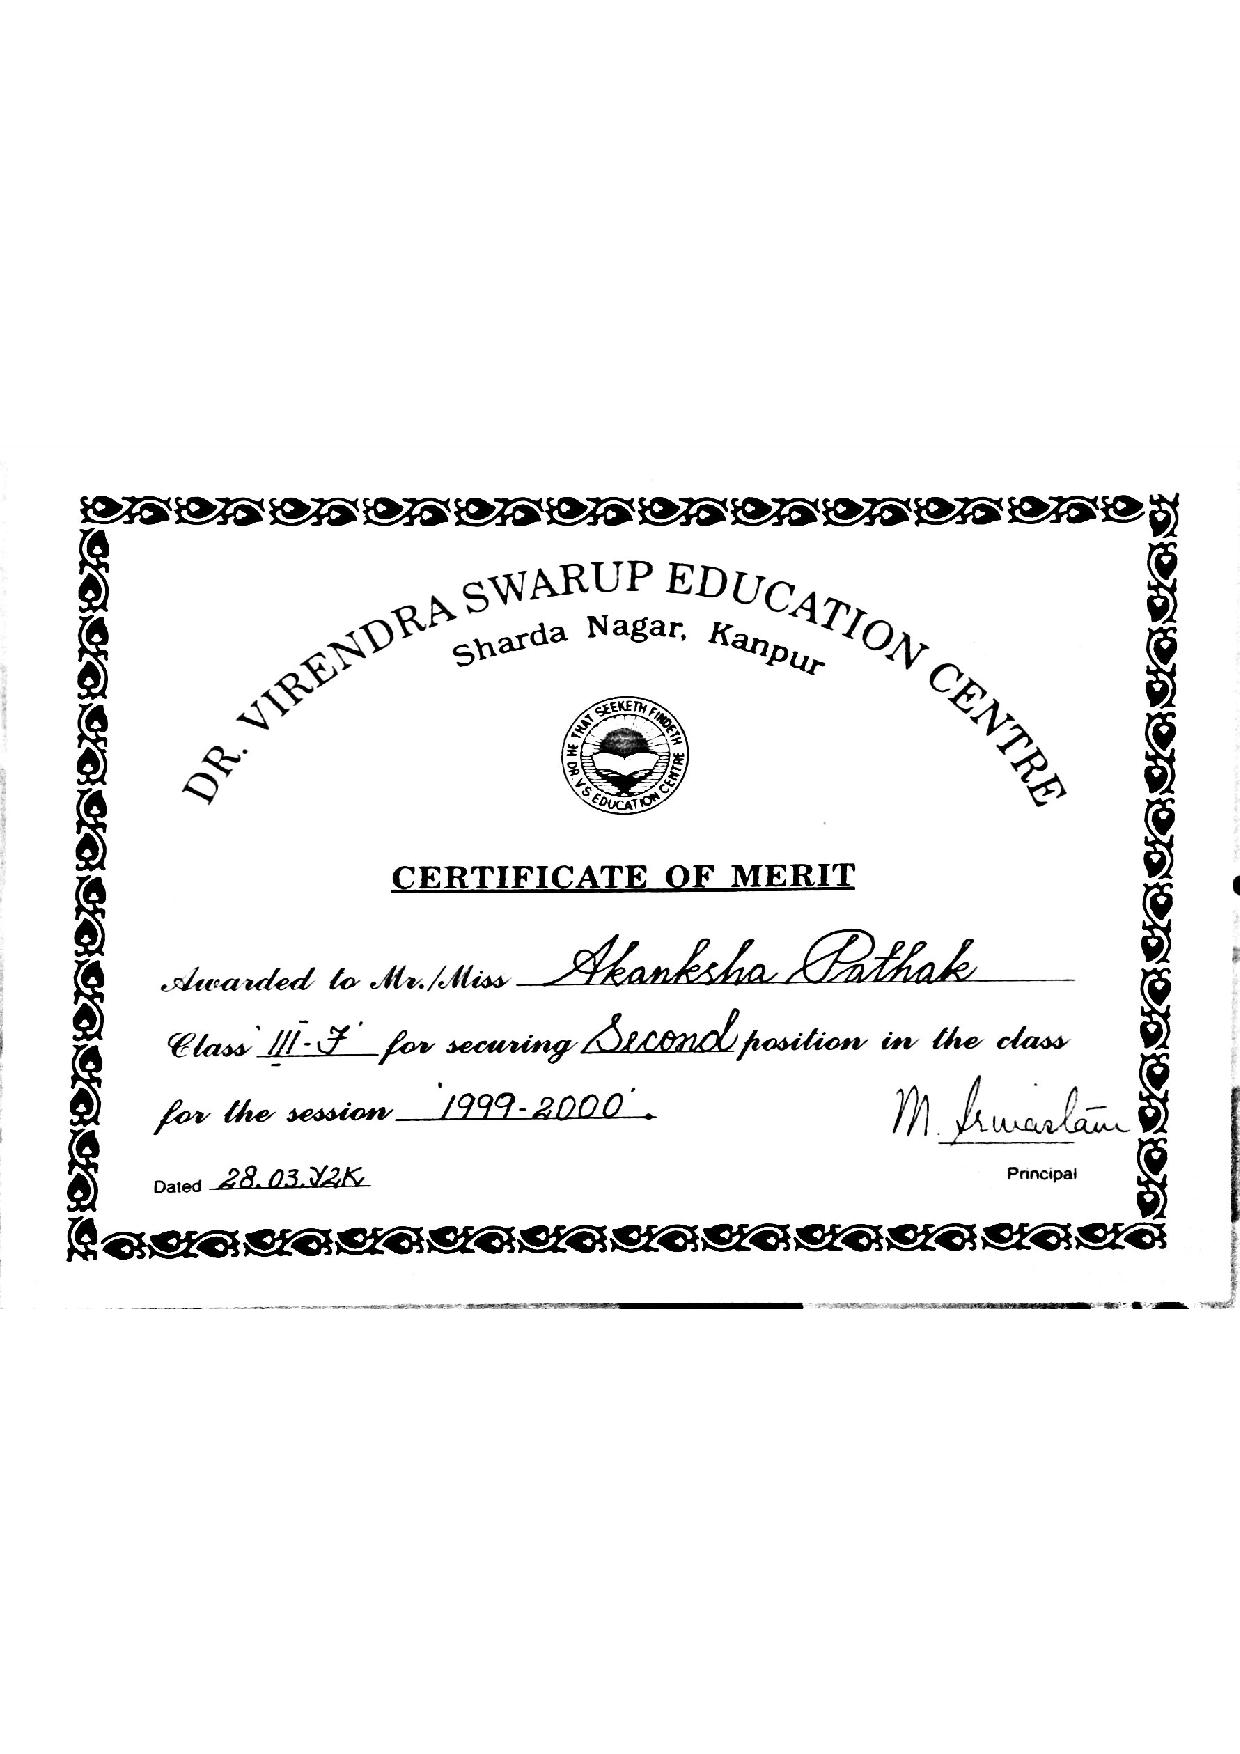 DR. VIRENDRA SWARUP EDUCATION CENTRE
Sharda Nagar, Kanpur
HE THAT SEEKETH FINDETH
DR. V.S. EDUCATION CENTRE
CERTIFICATE OF MERIT
Awarded to Mr./Miss Akanksha Pathak
Class 'III-F' for securing Second position in the class
for the session '1999-2000'.
M. Srivastava
Dated 28.03.Y2K
Principal